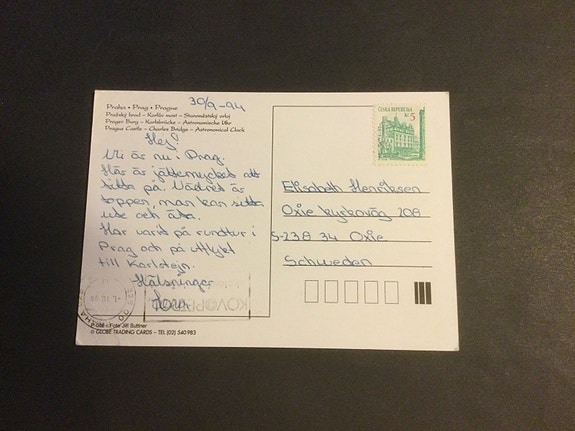 30/9-94
Praha • Prag • Prague
Pražský hrad – Karlův most – Staroměstský orloj
Prager Burg – Karlsbrücke – Astronomische Uhr
Prague Castle – Charles Bridge – Astronomical Clock
Hej!
Vi är nu i Prag.
Här är jättemycket att
titta på. Vädret är
toppen, man kan sitta
ute och äta.
Har varit på rundtur i
Prag och på utflykt
till Karlstejn.
Hälsningar
ČESKÁ REPUBLIKA
Kč 5
Elisabeth Henriksen
Oxie kyrkoväg 208
S-238 34 Oxie
Schweden
Foto Jiří
© GLOBE TRADING CARDS – TEL (02) 540 983